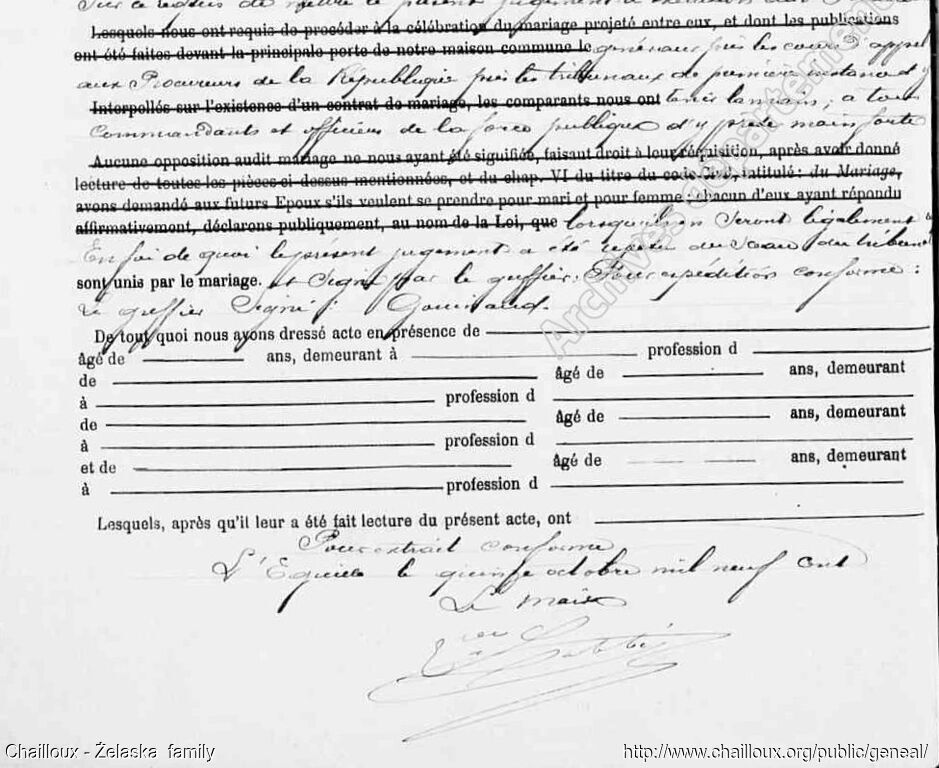 Lesquels nous ont requis de procéder à la célébration du mariage projeté entre eux, et dont les publications
ont été faites devant la principale porte de notre maison commune le généraux près les cours d'appel
aux Procureurs de la République près les tribunaux de première instance d'y
Interpellés sur l'existence d'un contrat de mariage, les comparants nous ont tenir la main, à tous
Commandants et officiers de la force publique d'y prêter main forte
Aucune opposition audit mariage ne nous ayant été signifiée, faisant droit à leur réquisition, après avoir donné
lecture de toutes les pièces ci-dessus mentionnées, et du chap. VI du titre du code Civil, intitulé : du Mariage,
avons demandé aux futurs Epoux s'ils veulent se prendre pour mari et pour femme ; chacun d'eux ayant répondu
affirmativement, déclarons publiquement, au nom de la Loi, que lorsqu'ils en seront légalement
En foi de quoi le présent jugement a été du sceau du tribunal
sont unis par le mariage. et signé par le greffier. Pour expédition conforme :
Le greffier Signé :
De tout quoi nous avons dressé acte en présence de
âgé de ans, demeurant à profession d
de âgé de ans, demeurant
à profession d
de âgé de ans, demeurant
à profession d
et de âgé de ans, demeurant
à profession d
Lesquels, après qu'il leur a été fait lecture du présent acte, ont
Pour extrait conforme
le quinze octobre mil neuf cent
Le maire
Archives départementales
Chailloux - Żelaska family
http://www.chailloux.org/public/geneal/